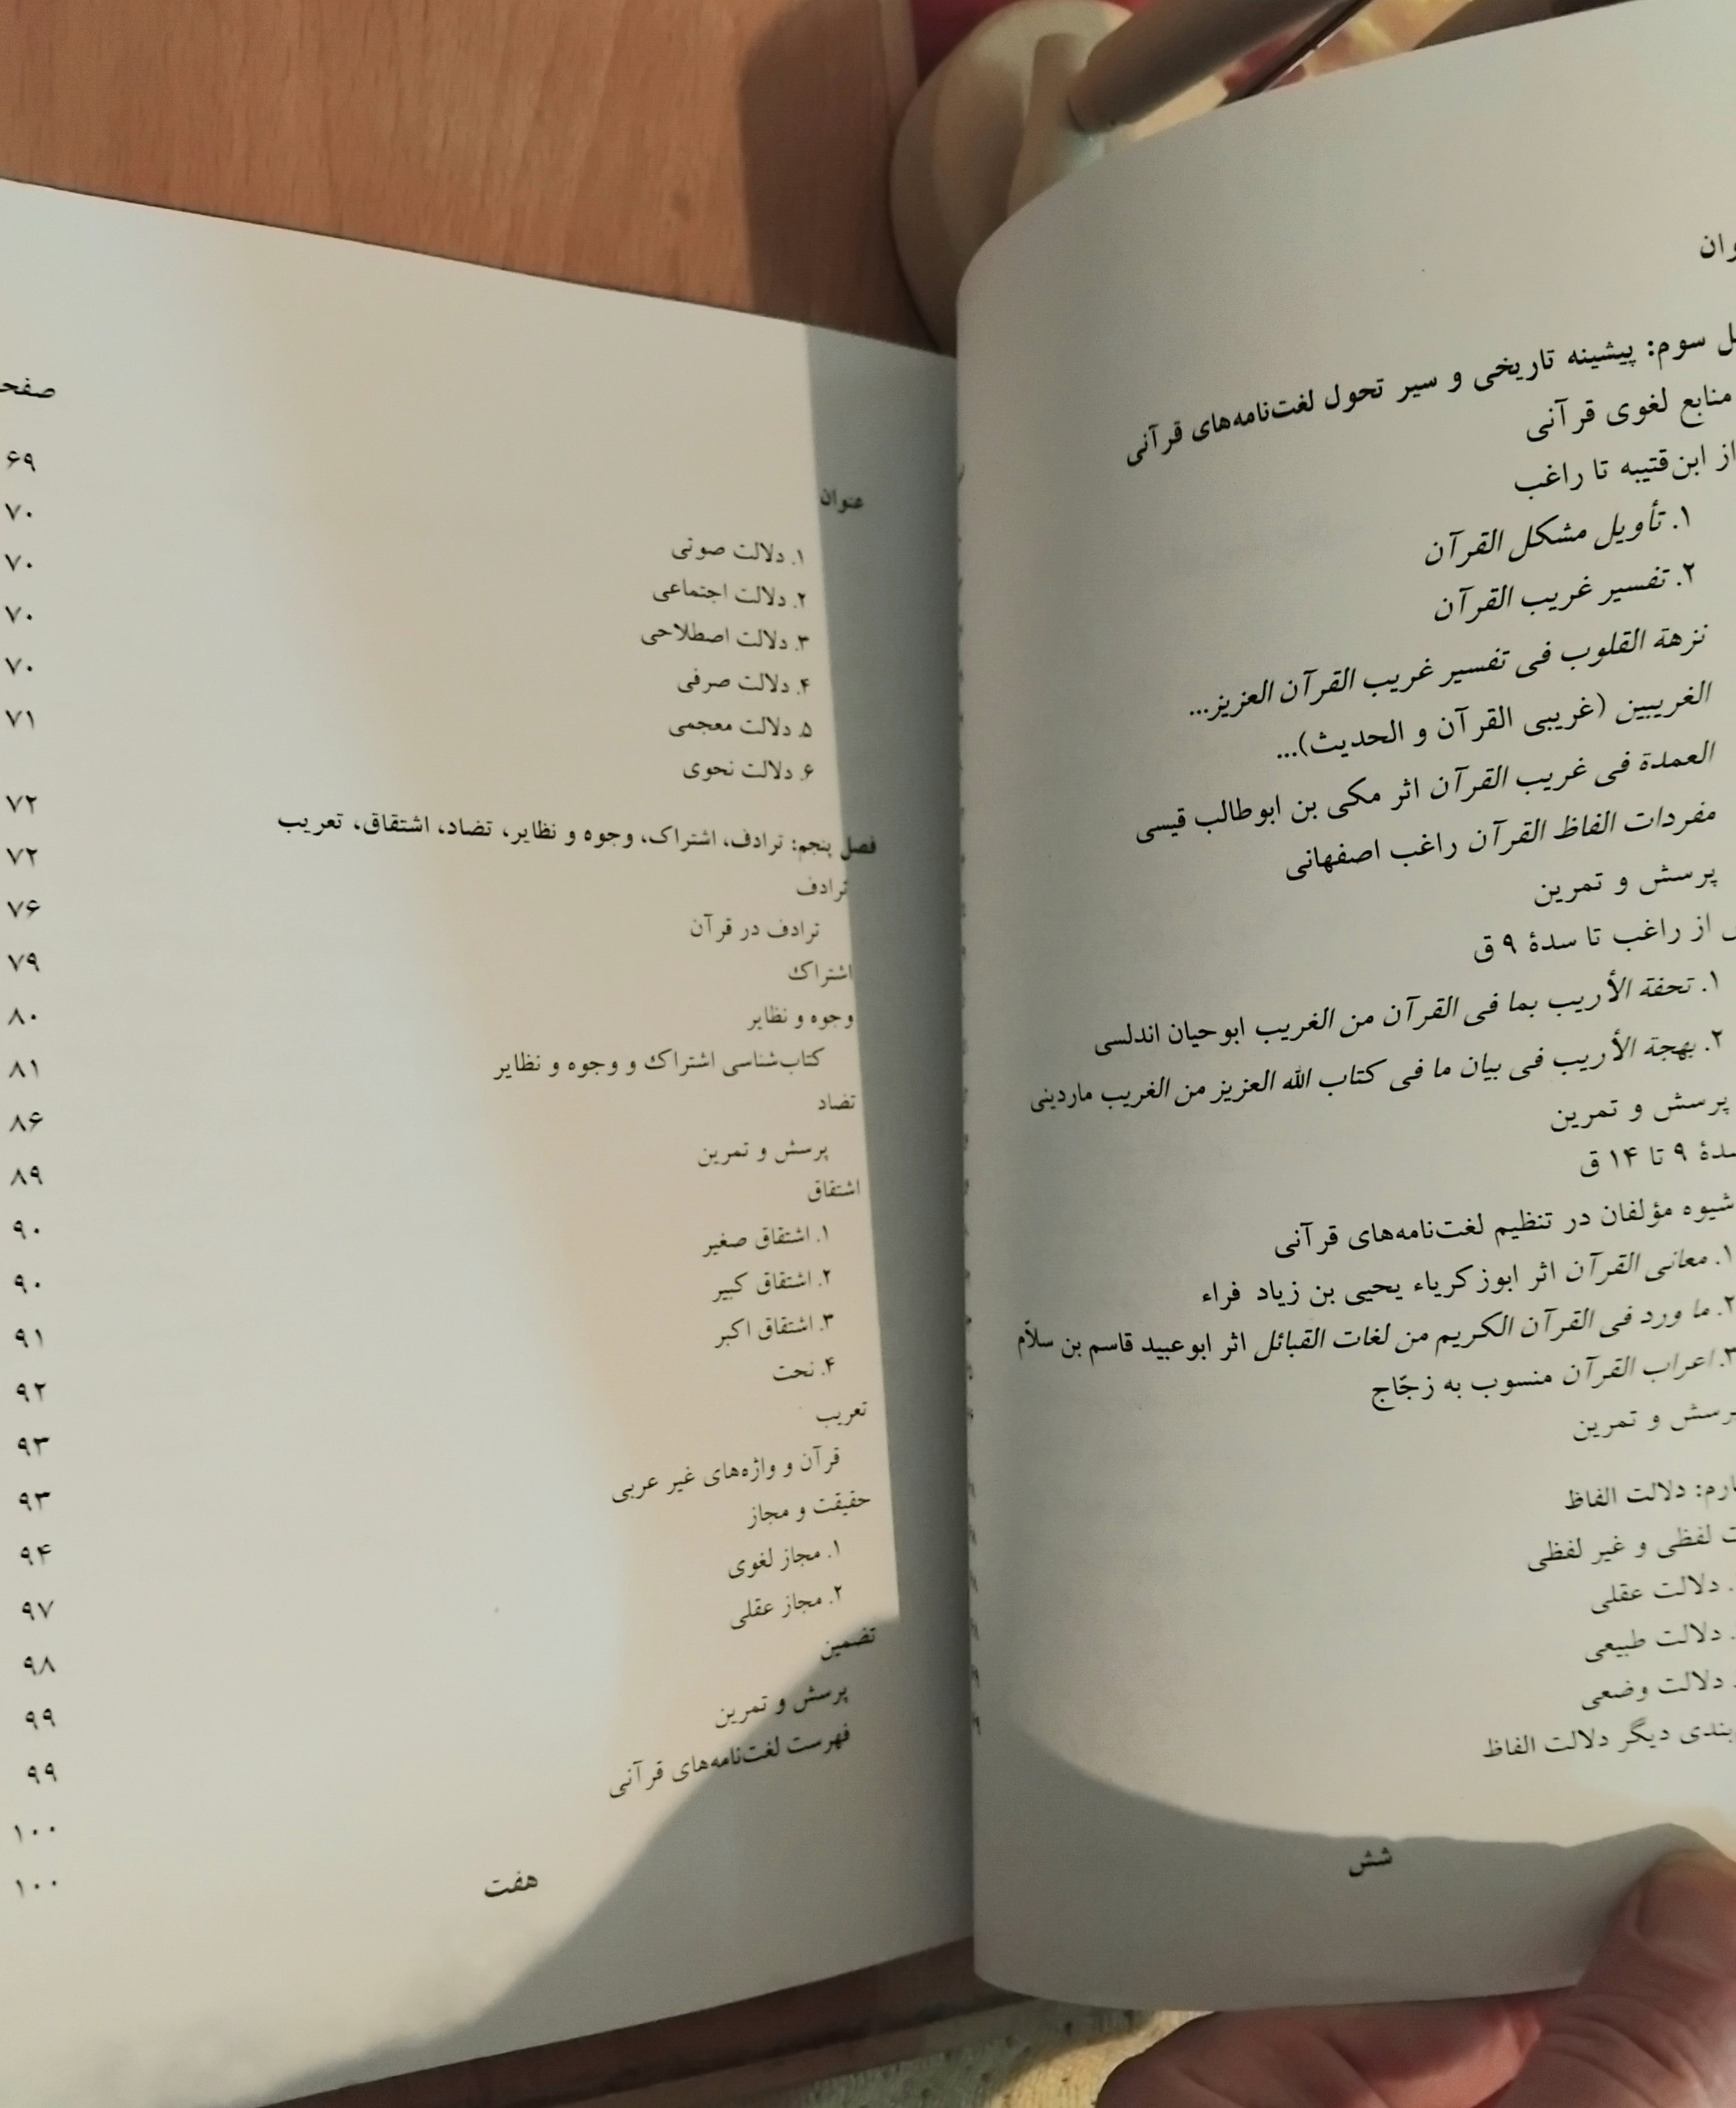 سوم: پیشینه تاریخی و سیر تحول لغت‌نامه‌های قرآنی
منابع لغوی قرآنی
از ابن‌قتیبه تا راغب
۱. تأویل مشکل القرآن
۲. تفسیر غریب القرآن
نزهة القلوب فی تفسیر غریب القرآن العزیز...
الغریبین (غریبی القرآن و الحدیث)...
العمدة فی غریب القرآن اثر مکی بن ابوطالب قیسی
مفردات الفاظ القرآن راغب اصفهانی
پرسش و تمرین
از راغب تا سدۀ ۹ ق
۱. تحفة الأریب بما فی القرآن من الغریب ابوحیان اندلسی
۲. بهجة الأریب فی بیان ما فی کتاب الله العزیز من الغریب ماردینی
پرسش و تمرین
۹ تا ۱۴ ق
شیوه مؤلفان در تنظیم لغت‌نامه‌های قرآنی
۱. معانی القرآن اثر ابوزکریاء یحیی بن زیاد فراء
۲. ما ورد فی القرآن الکریم من لغات القبائل اثر ابوعبید قاسم بن سلاّم
۳. اعراب القرآن منسوب به زجّاج
و تمرین
دلالت الفاظ
لفظی و غیر لفظی
دلالت عقلی
دلالت طبیعی
دلالت وضعی
دیگر دلالت الفاظ
شش
عنوان
۱. دلالت صوتی ۶۹
۲. دلالت اجتماعی ۷۰
۳. دلالت اصطلاحی ۷۰
۴. دلالت صرفی ۷۰
۵. دلالت معجمی ۷۰
۶. دلالت نحوی ۷۱
فصل پنجم: ترادف، اشتراک، وجوه و نظایر، تضاد، اشتقاق، تعریب ۷۲
ترادف ۷۲
ترادف در قرآن ۷۶
اشتراک ۷۹
وجوه و نظایر ۸۰
کتاب‌شناسی اشتراک و وجوه و نظایر ۸۱
تضاد ۸۶
پرسش و تمرین ۸۹
اشتقاق ۹۰
۱. اشتقاق صغیر ۹۰
۲. اشتقاق کبیر ۹۱
۳. اشتقاق اکبر ۹۲
۴. نحت ۹۳
تعریب ۹۳
قرآن و واژه‌های غیر عربی ۹۴
حقیقت و مجاز ۹۷
۱. مجاز لغوی ۹۸
۲. مجاز عقلی ۹۹
تضمین ۹۹
پرسش و تمرین ۱۰۰
فهرست لغت‌نامه‌های قرآنی ۱۰۰
هفت